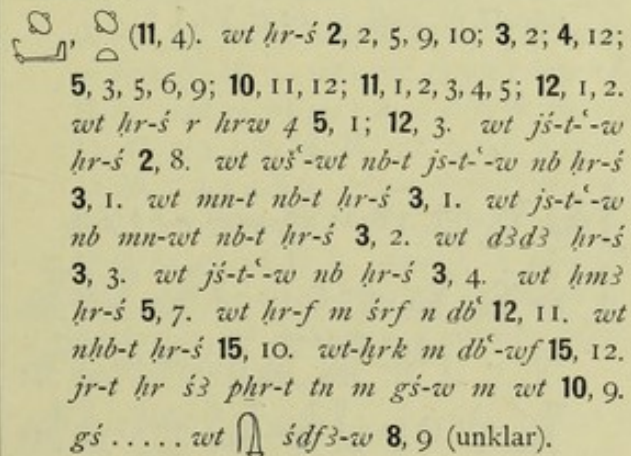 (11, 4). wt ḥr-ś 2, 2, 5, 9, 10; 3, 2; 4, 12;
5, 3, 5, 6, 9; 10, 11, 12; 11, 1, 2, 3, 4, 5; 12, 1, 2.
wt ḥr-ś r hrw 4 5, 1; 12, 3. wt jś-t-ʿ-w
ḥr-ś 2, 8. wt wšʿ-wt nb-t js-t-ʿ-w nb ḥr-ś
3, 1. wt mn-t nb-t ḥr-ś 3, 1. wt js-t-ʿ-w
nb mn-wt nb-t ḥr-ś 3, 2. wt dꜣdꜣ ḥr-ś
3, 3. wt jś-t-ʿ-w nb ḥr-ś 3, 4. wt ḥmꜣ
ḥr-ś 5, 7. wt ḥr-f m śrf n dbʿ 12, 11. wt
nḥb-t ḥr-ś 15, 10. wt-ḥrk m dbʿ-wf 15, 12.
jr-t ḥr śꜣ pẖr-t tn m gś-w m wt 10, 9.
gś ..... wt śdfꜣ-w 8, 9 (unklar).